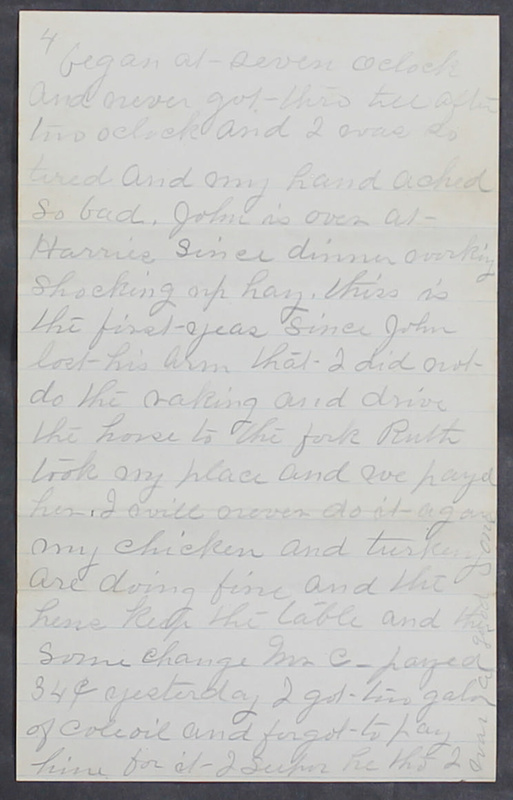 4
began at seven oclock
and never got thro till after
two oclock and I was so
tired and my hand ached
so bad. John is over at
Harries since dinner working
shocking up hay. this is
the first year since John
lost his arm that I did not
do the raking and drive
the horse to the fork Ruth
took my place and we payed
her. I will never do it again
my chicken and turkeys
are doing fine and the
hens keep the table and then
some change Mr C- payed
34¢ yesterday I got two galon
of coleoil and forgot to pay
him for it I supor he tho I
was a good one